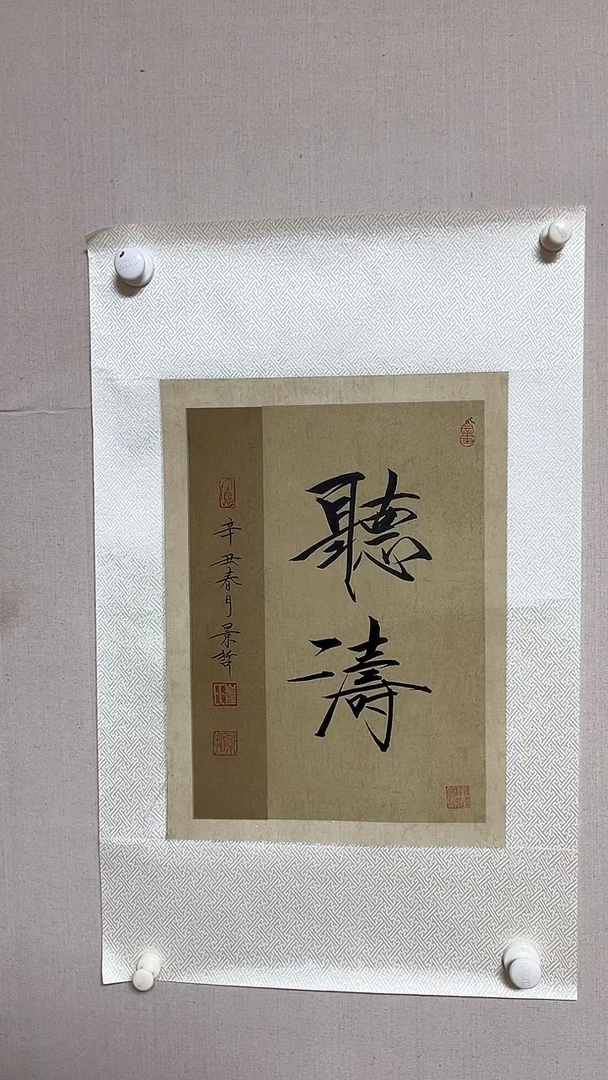 聽濤
辛丑春月景哲